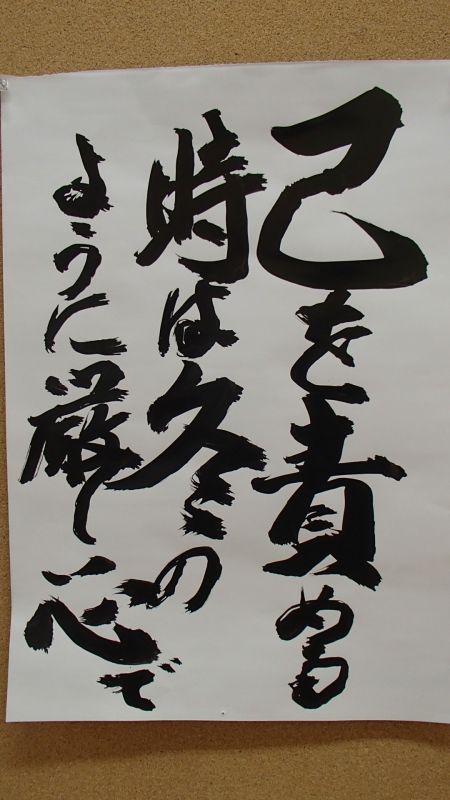 己を責める
時は冬の
ように厳し心で